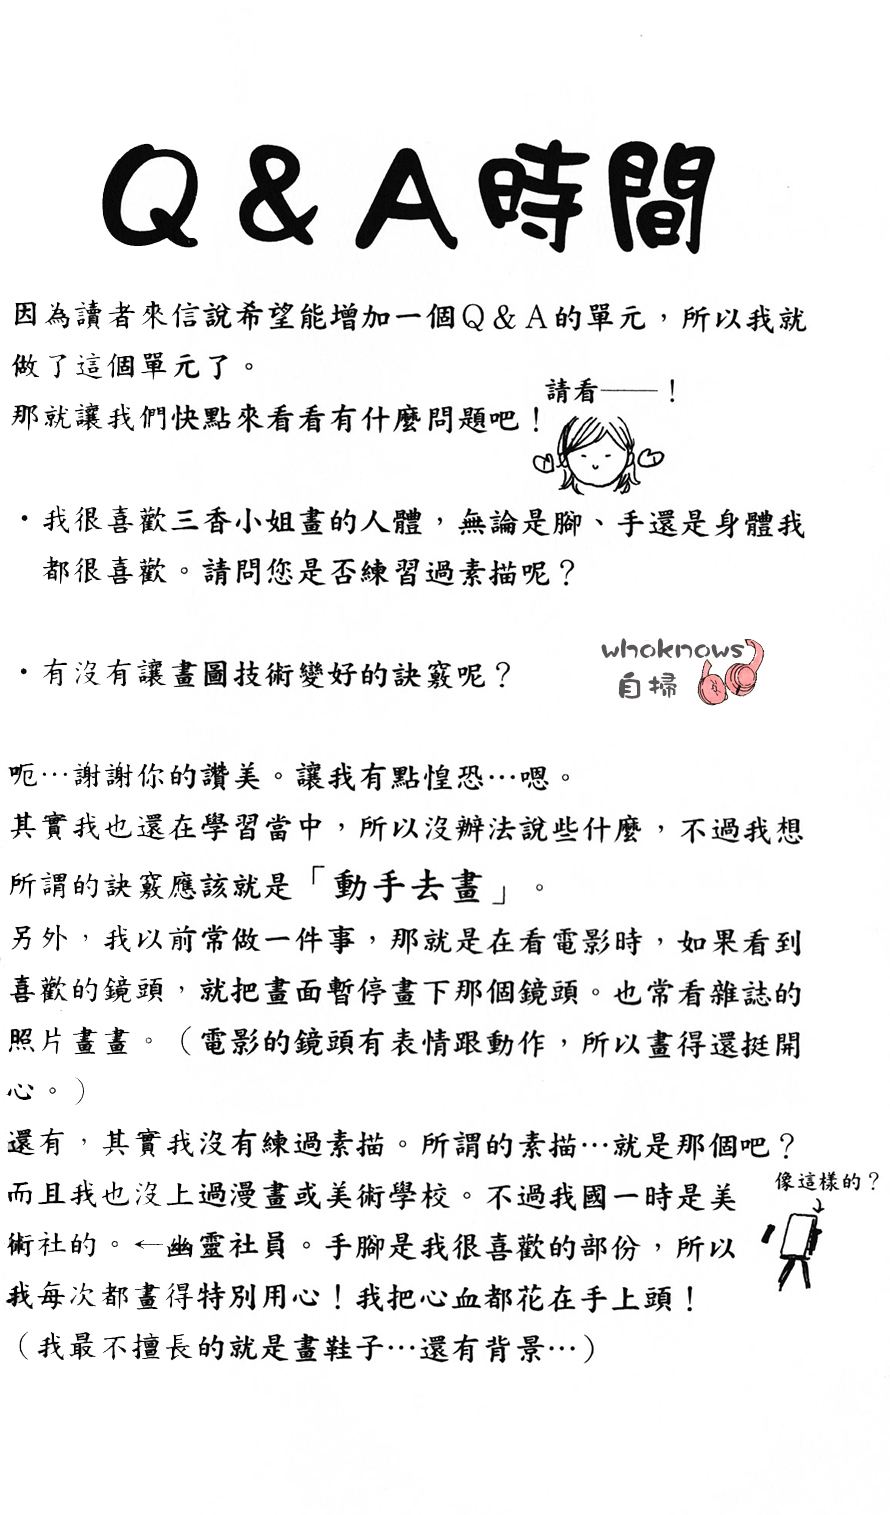 Q＆A時間
因為讀者來信說希望能增加一個Q＆A的單元，所以我就
做了這個單元了。
請看——！
那就讓我們快點來看看有什麼問題吧！
・我很喜歡三香小姐畫的人體，無論是腳、手還是身體我
都很喜歡。請問您是否練習過素描呢？
・有沒有讓畫圖技術變好的訣竅呢？
whoknows
自掃
呃…謝謝你的讚美。讓我有點惶恐…嗯。
其實我也還在學習當中，所以沒辦法說些什麼，不過我想
所謂的訣竅應該就是「動手去畫」。
另外，我以前常做一件事，那就是在看電影時，如果看到
喜歡的鏡頭，就把畫面暫停畫下那個鏡頭。也常看雜誌的
照片畫畫。（電影的鏡頭有表情跟動作，所以畫得還挺開
心。）
還有，其實我沒有練過素描。所謂的素描…就是那個吧？
像這樣的？
而且我也沒上過漫畫或美術學校。不過我國一時是美
術社的。←幽靈社員。手腳是我很喜歡的部份，所以
我每次都畫得特別用心！我把心血都花在手上頭！
（我最不擅長的就是畫鞋子…還有背景…）